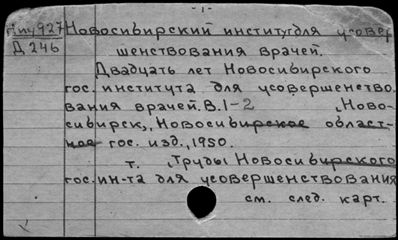 -1-
Ппу927 Новосибирский институт для усовер
Д 246 шенствования врачей.
Двадцать лет Новосибирского
гос. института для усовершенство.
вания врачей. В.1-2 „Ново-
сибирск„, Новосибирское област-
ное гос. изд., 1950.
т. „Труды Новосибирского
гос. ин-та для усовершенствования
см. след. карт.